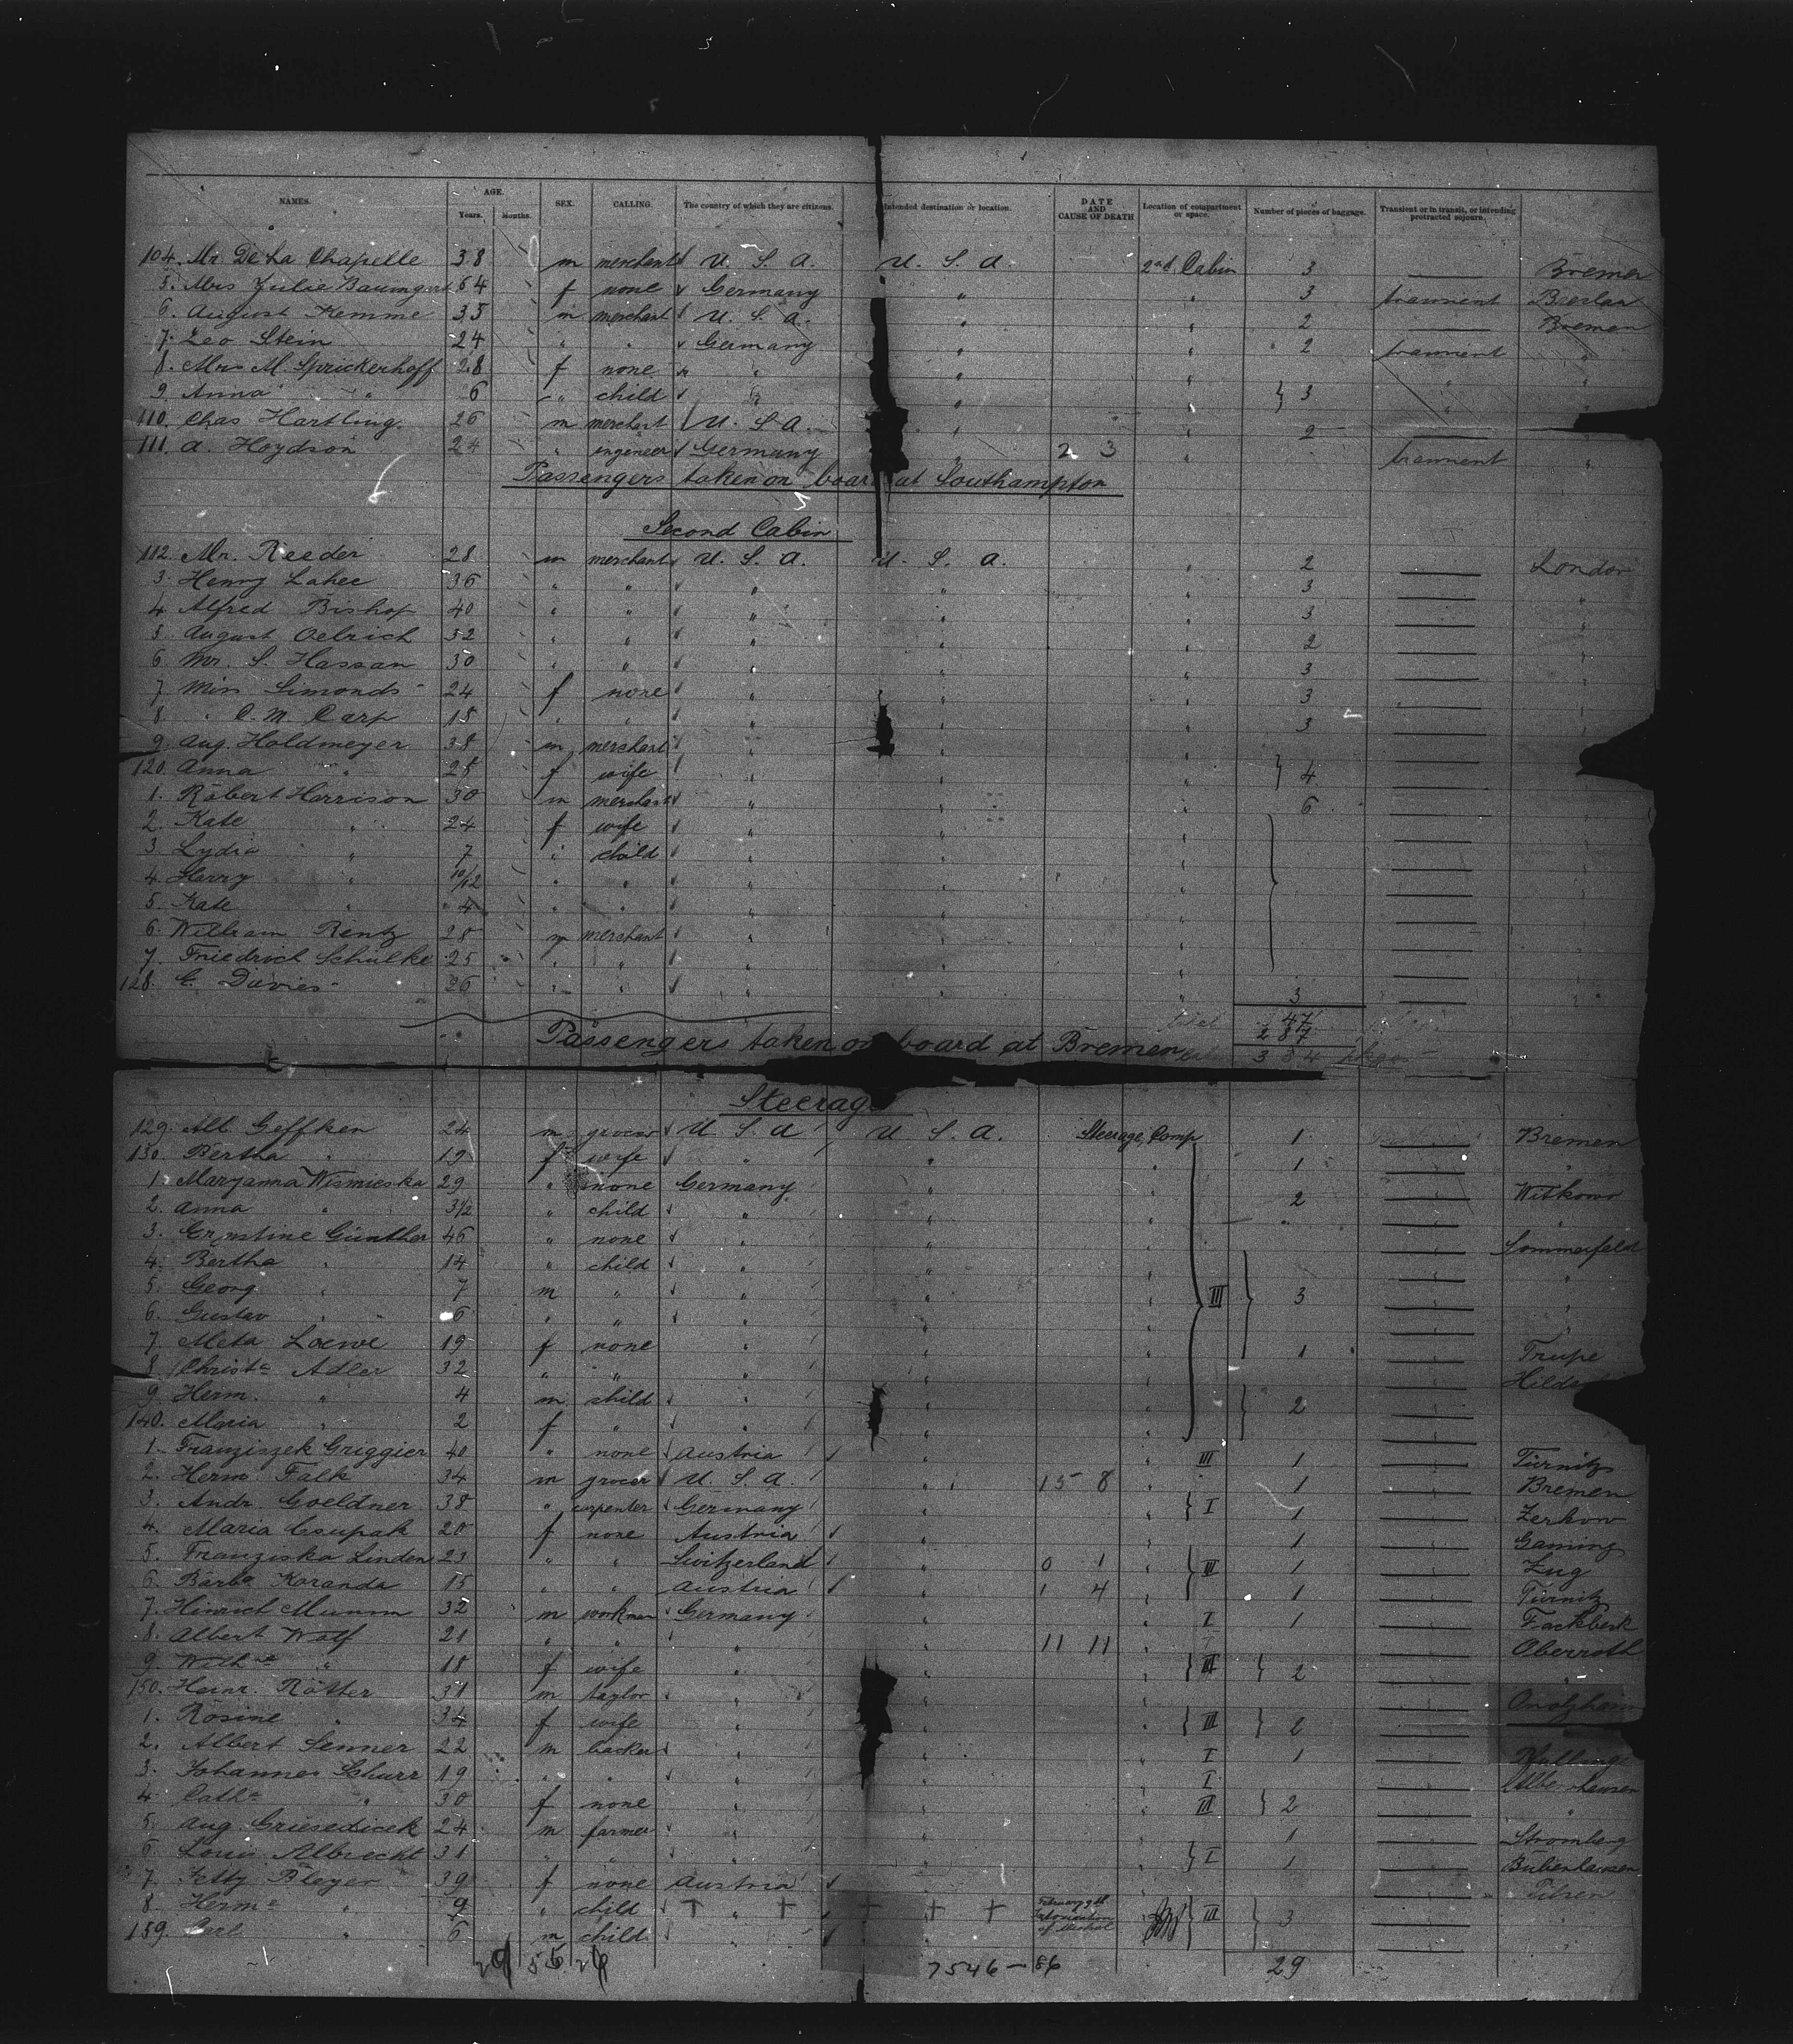 NAMES. AGE. Years. Months. SEX. CALLING. The country of which they are citizens. Intended destination or location. DATE AND CAUSE OF DEATH Location of compartment or space. Number of pieces of baggage. Transient or in transit, or intending protracted sojourn.
104. Mr De La Chapelle 38 m merchant U. S. A. U. S. A. 2nd Cabin 3 — Bremen
5. Mrs Julie Baumgart 64 f none Germany " " 3 transient Breslau
6. August Kemme 35 m merchant U. S. A. " " 2 — Bremen
7. Leo Stein 24 " " Germany " " 2 transient "
8. Mrs M. Sprickerhoff 28 f none " " " " "
9. Anna " 6 " child " " " 3 " "
110. Chas Hartling 26 m merchant U. S. A. " " 2 — "
111. A. Hoydson 24 " engineer Germany " 2 3 " transient "
Passengers taken on board at Southampton
Second Cabin
112. Mr. Reeder 28 m merchant U. S. A. U. S. A. " 2 — London
3. Henry Lahee 36 " " " " " 3 — "
4. Alfred Bishop 40 " " " " " 3 — "
5. August Oelrich 52 " " " " " 2 — "
6. Mr. S. Hassan 30 " " " " " 3 — "
7. Miss Simonds 24 f none " " " 3 — "
8. " C. M. Carp 18 " " " " " 3 — "
9. Aug. Holdmeyer 38 m merchant " " " —
120. Anna " 28 f wife " " " 4 —
1. Robert Harrison 30 m merchant " " " 6 — "
2. Kate " 24 f wife " " " — "
3. Lydia " 7 " child " " " — "
4. Harry " 10/12 " " " " " — "
5. Kate " 4 " " " " " — "
6. William Rentz 28 m merchant " " " — "
7. Friedrich Schülke 25 " " " " " — "
128. E. Davies 26 " " " " " 3 — "
total 47
287
Passengers taken on board at Bremen 334
Steerage
129. Alb. Geffken 24 m grocer U S A U. S. A. Steerage, Comp 1 — Bremen
130. Bertha " 19 f wife " " " 1 — "
1. Maryanna Wismieska 29 " none Germany " " 2 — Witkowo
2. Anna " 3½ " child " " " " — "
3. Ernstine Günther 46 " none " " " — Sommerfeld
4. Bertha " 14 " child " " " — "
5. Georg " 7 m " " " " III 3 — "
6. Gustav " 6 " " " " " — "
7. Meta Loewe 19 f none " " " 1 — Trupe
8. Christe Adler 32 " " " " " —
9. Herm. " 4 m child " " " 2 —
140. Maria " 2 f " " " " —
1. Franziszek Griggier 40 " none Austria " " III 1 — Türnitz
2. Herm. Falk 34 m grocer U. S. A. " 15 8 " 1 — Bremen
3. Andr. Goeldner 38 " carpenter Germany " " I 1 — Zerkow
4. Maria Csupak 20 f none Austria " " 1 — Gaming
5. Franziska Linden 23 " " Switzerland " 0 1 " III 1 — Zug
6. Barba Koranda 15 " " Austria " 1 4 " 1 — Türnitz
7. Hinrich Mumm 32 m workman Germany " " I 1 — Fackbeck
8. Albert Wolf 21 " " " " 11 11 " I — Oberroth
9. Wilhne " 18 f wife " " " III 2 — "
150. Heinr. Rötter 31 m taylor " " " —
1. Rosine " 34 f wife " " " III 2 —
2. Albert Senner 22 m backer " " " I 1 —
3. Johannes Schurr 19 " " " " " I —
4. Cathe " 30 f none " " " III 2 — "
5. Aug. Griesedieck 24 m farmer " " " 1 — Stromberg
6. Louis Albrecht 31 " " " " " I 1 —
7. Jetty Bleyer 39 f none Austria " " — Pilsen
8. Herme " 9 " child " " February 9th of III 3 — "
159. Carl " 6 m child " " " — "
7546 — 86 29